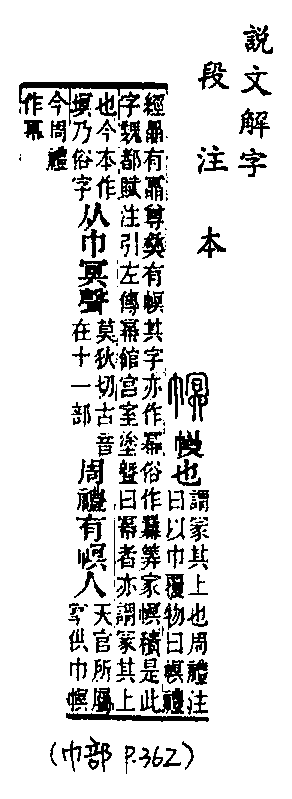 說文解字
段注本
幔也
謂冡其上也周禮注
曰以巾覆物曰幎禮
經鼎有鼏尊彝有幎其字亦作冪俗作羃筭家幎積是此
字魏都賦注引左傳冪館宮室塗塈曰冪者亦謂冡其上
也今本作
塓乃俗字
从巾冥聲
莫狄切古音
在十一部
周禮有幎人
天官所屬
掌供巾幎
今周禮
作冪
(巾部 P.362)